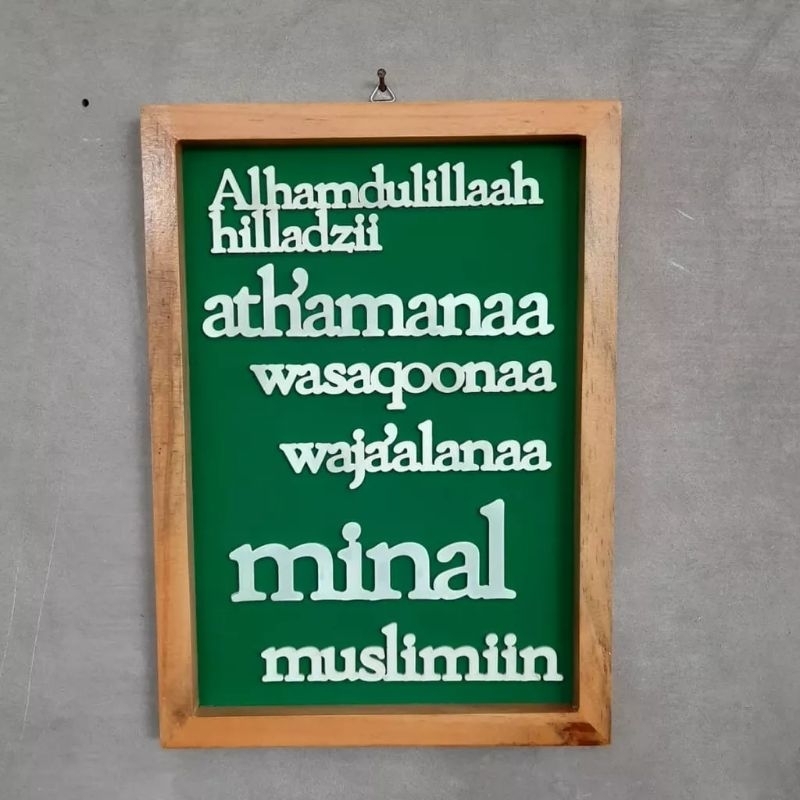 Alhamdulillaah
hilladzii
ath'amanaa
wasaqoonaa
waja'alanaa
minal
muslimiin